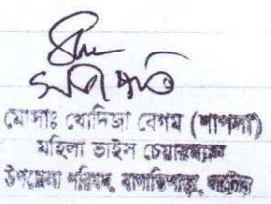 সভাপতি
মোসাঃ খোদিজা বেগম (শাপলা)
মহিলা ভাইস চেয়ারম্যান
উপজেলা পরিষদ, বাগাতিপাড়া, নাটোর